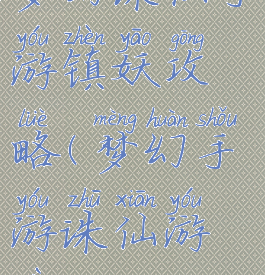 yóu zhèn yāo gōng
游镇妖攻
lüè mèng huàn shǒu
略(梦幻手
yóu zhū xiān yóu
游诛仙游